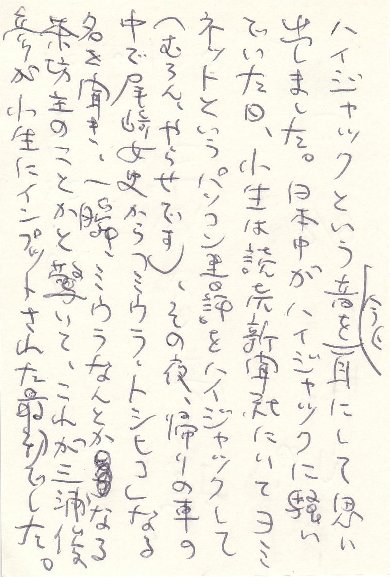 ハイジャックという音を今に耳にして思い
出しました。日本中がハイジャックに騒い
でいた日、小生は読売新聞社にいてヨミ
ネットというパソコン書評をハイジャックして
(むろん、やらせです)、その夜、帰りの車の
中で尾崎女史から「ミウラ・トシヒコ」なる
名を聞き、一瞬、ミウラなんとかなる
茶坊主のことかと驚いて、これが三浦俊
彦が小生にインプットされた最初でした。